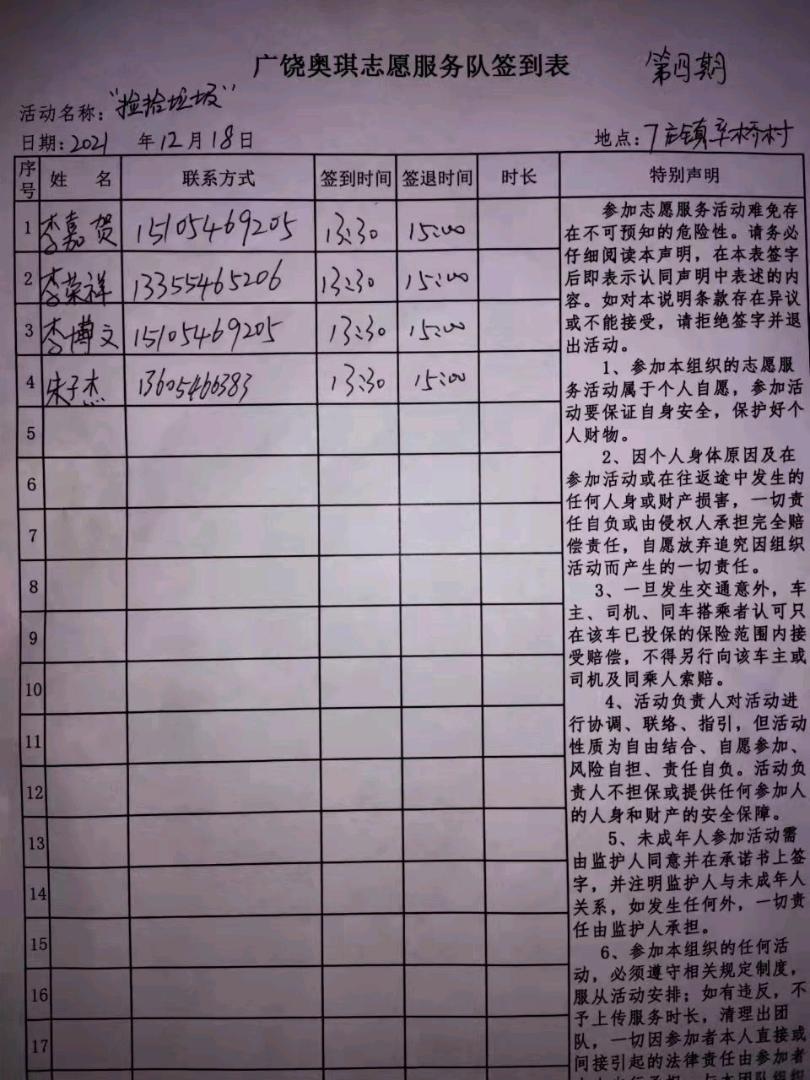 广饶奥琪志愿服务队签到表 第四期
活动名称："捡拾垃圾"
日期：2021 年12月18日 地点：丁庄镇辛桥村
序号 姓 名 联系方式 签到时间 签退时间 时长 特别声明
1 李嘉贺 15105469205 13:30 15:00
2 李荣祥 13355465206 13:30 15:00
3 李博文 15105469205 13:30 15:00
4 宋子杰 13605466383 13:30 15:00
5
6
7
8
9
10
11
12
13
14
15
16
17
参加志愿服务活动难免存
在不可预知的危险性。请务必
仔细阅读本声明，在本表签字
后即表示认同声明中表述的内
容。如对本说明条款存在异议
或不能接受，请拒绝签字并退
出活动。
1、参加本组织的志愿服
务活动属于个人自愿，参加活
动要保证自身安全，保护好个
人财物。
2、因个人身体原因及在
参加活动或在往返途中发生的
任何人身或财产损害，一切责
任自负或由侵权人承担完全赔
偿责任，自愿放弃追究因组织
活动而产生的一切责任。
3、一旦发生交通意外，车
主、司机、同车搭乘者认可只
在该车已投保的保险范围内接
受赔偿，不得另行向该车主或
司机及同乘人索赔。
4、活动负责人对活动进
行协调、联络、指引，但活动
性质为自由结合、自愿参加、
风险自担、责任自负。活动负
责人不担保或提供任何参加人
的人身和财产的安全保障。
5、未成年人参加活动需
由监护人同意并在承诺书上签
字，并注明监护人与未成年人
关系，如发生任何外，一切责
任由监护人承担。
6、参加本组织的任何活
动，必须遵守相关规定制度，
服从活动安排；如有违反，不
予上传服务时长，清理出团
队，一切因参加者本人直接或
间接引起的法律责任由参加者